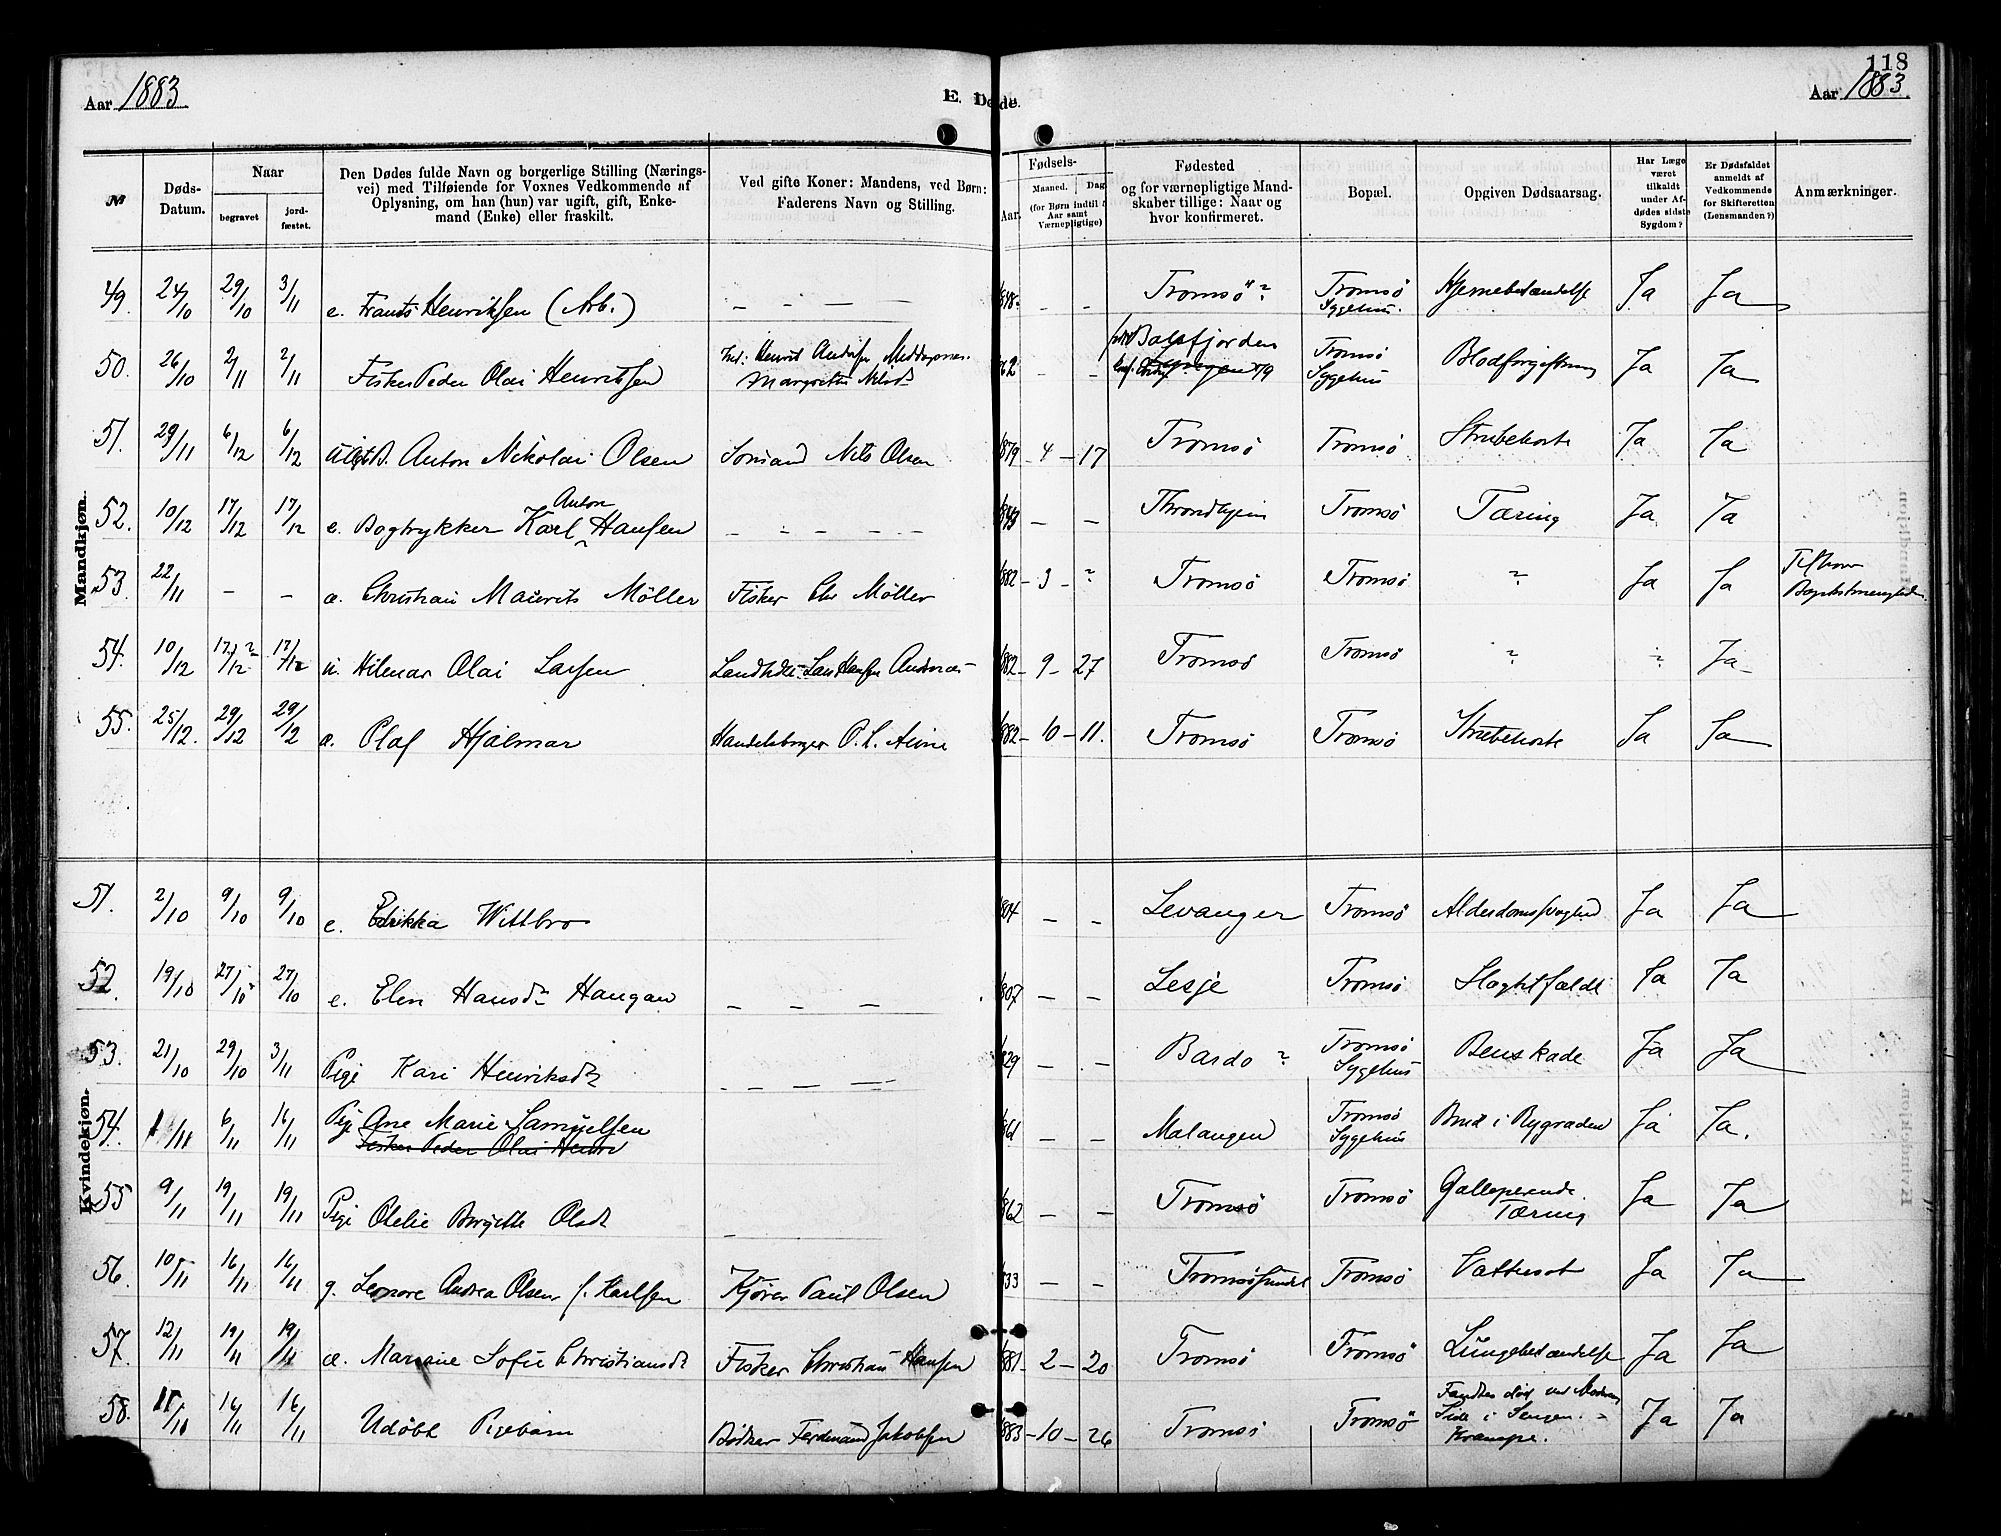 118
Aar 1883
E. Døde.
Aar 1883
№
Døds-Datum.
Naar
begravet
jordfæstet.
Den Dødes fulde Navn og borgerlige Stilling (Næringsvei) med Tilføiende for Voxnes Vedkommende af Oplysning, om han (hun) var ugift, gift, Enkemand (Enke) eller fraskilt.
Ved gifte Koner: Mandens, ved Børn: Faderens Navn og Stilling.
Fødsels-
Aar.
Maaned.
Dag
(for Børn indtil Aar samt Værnepligtige)
Fødested og for værnepligtige Mandskaber tillige: Naar og hvor konfirmeret.
Bopæl.
Opgiven Dødsaarsag.
Har Læge været tilkaldt under Afdødes sidste Sygdom?
Er Dødsfaldet anmeldt af Vedkommende for Skifteretten (Lensmanden?)
Anmærkninger.
Mandkjøn.
49. 24/10 29/10 3/11 e. Frants Henriksen (Arb.) – – – – – – Tromsö ? Tromsö Sygehus. Hjernebetændelse Ja Ja
50. 26/10 2/11 2/11 Fisker Peder Olai Henriksen – – Balsfjorden Tromsö Sygehus Blodforgiftning Ja Ja
51. 29/11 6/12 6/12 Anton Nikolai Olsen Sömand Nils Olsen 1879 – 4 – 17 Tromsö Tromsö Strubehoste Ja Ja
52. 10/12 17/12 17/12 e. Bogtrykker Karl Anton Hansen – – – – – – – Throndhjem Tromsö Tæring Ja Ja
53. 22/11 – – æ. Christian Maurits Möller Fisker Chr Möller 1882 – 3 – ? Tromsö Tromsö ? Ja Ja
54. 10/12 17/12 ? 17/12 u. Hilmar Olai Larsen Lars Hansen 1882 – 9 – 27 Tromsö Tromsö ? ? Ja
55. 25/12. 29/12 29/12 æ. Olaf Hjalmar Handelsborger O. L. Aune 1882 – 10 – 11. Tromsö Tromsö Strubehoste Ja Ja
Kvindekjøn.
51. 2/10 9/10 9/10 e. Erikka Wittbro 1804 – – Levanger Tromsö Alderdomssvaghed Ja Ja
52. 19/10 27/10 27/10 e. Elen Hansd. Haugan – – – 1807 – – Lesje Tromsö Slagtilfælde Ja Ja
53. 21/10 29/10 3/11 Pige Kari Henriksdr – – – – 1829 – – Bardo ? Tromsö Sygehus Benskade Ja Ja
54. 6/11 16/11 Pige Ane Marie Samuelsen
Fisker Peder Olai Henri
1861 – – Malangen Tromsö Sygehus Brud i Rygraden Ja Ja.
55 9/11 19/11 19/11 Pige Otelie Birgitte Olsdr – 1862 – – Tromsö Tromsö Galloperende Tæring Ja Ja
56. 10/11 16/11 16/11 g. Leonore Andrea Olsen f. Karlsen Kjörer Paul Olsen 1833 – – Tromsösundet Tromsö Vattersot Ja Ja
57. 12/11 19/11 19/11 æ. Mariane Sofie Christiansdr Fisker Christian Hansen 1881 – 2 – 20 Tromsö Tromsö Lungebetændelse Ja Ja
58. 16/11 16/11 Udöbt Pigebarn Bödker Ferdinand Jakobsen 1883 – 10 – 26 Tromsö Tromsö Fandtes död ved Moderens Side i Sengen. – Krampe. Ja Ja